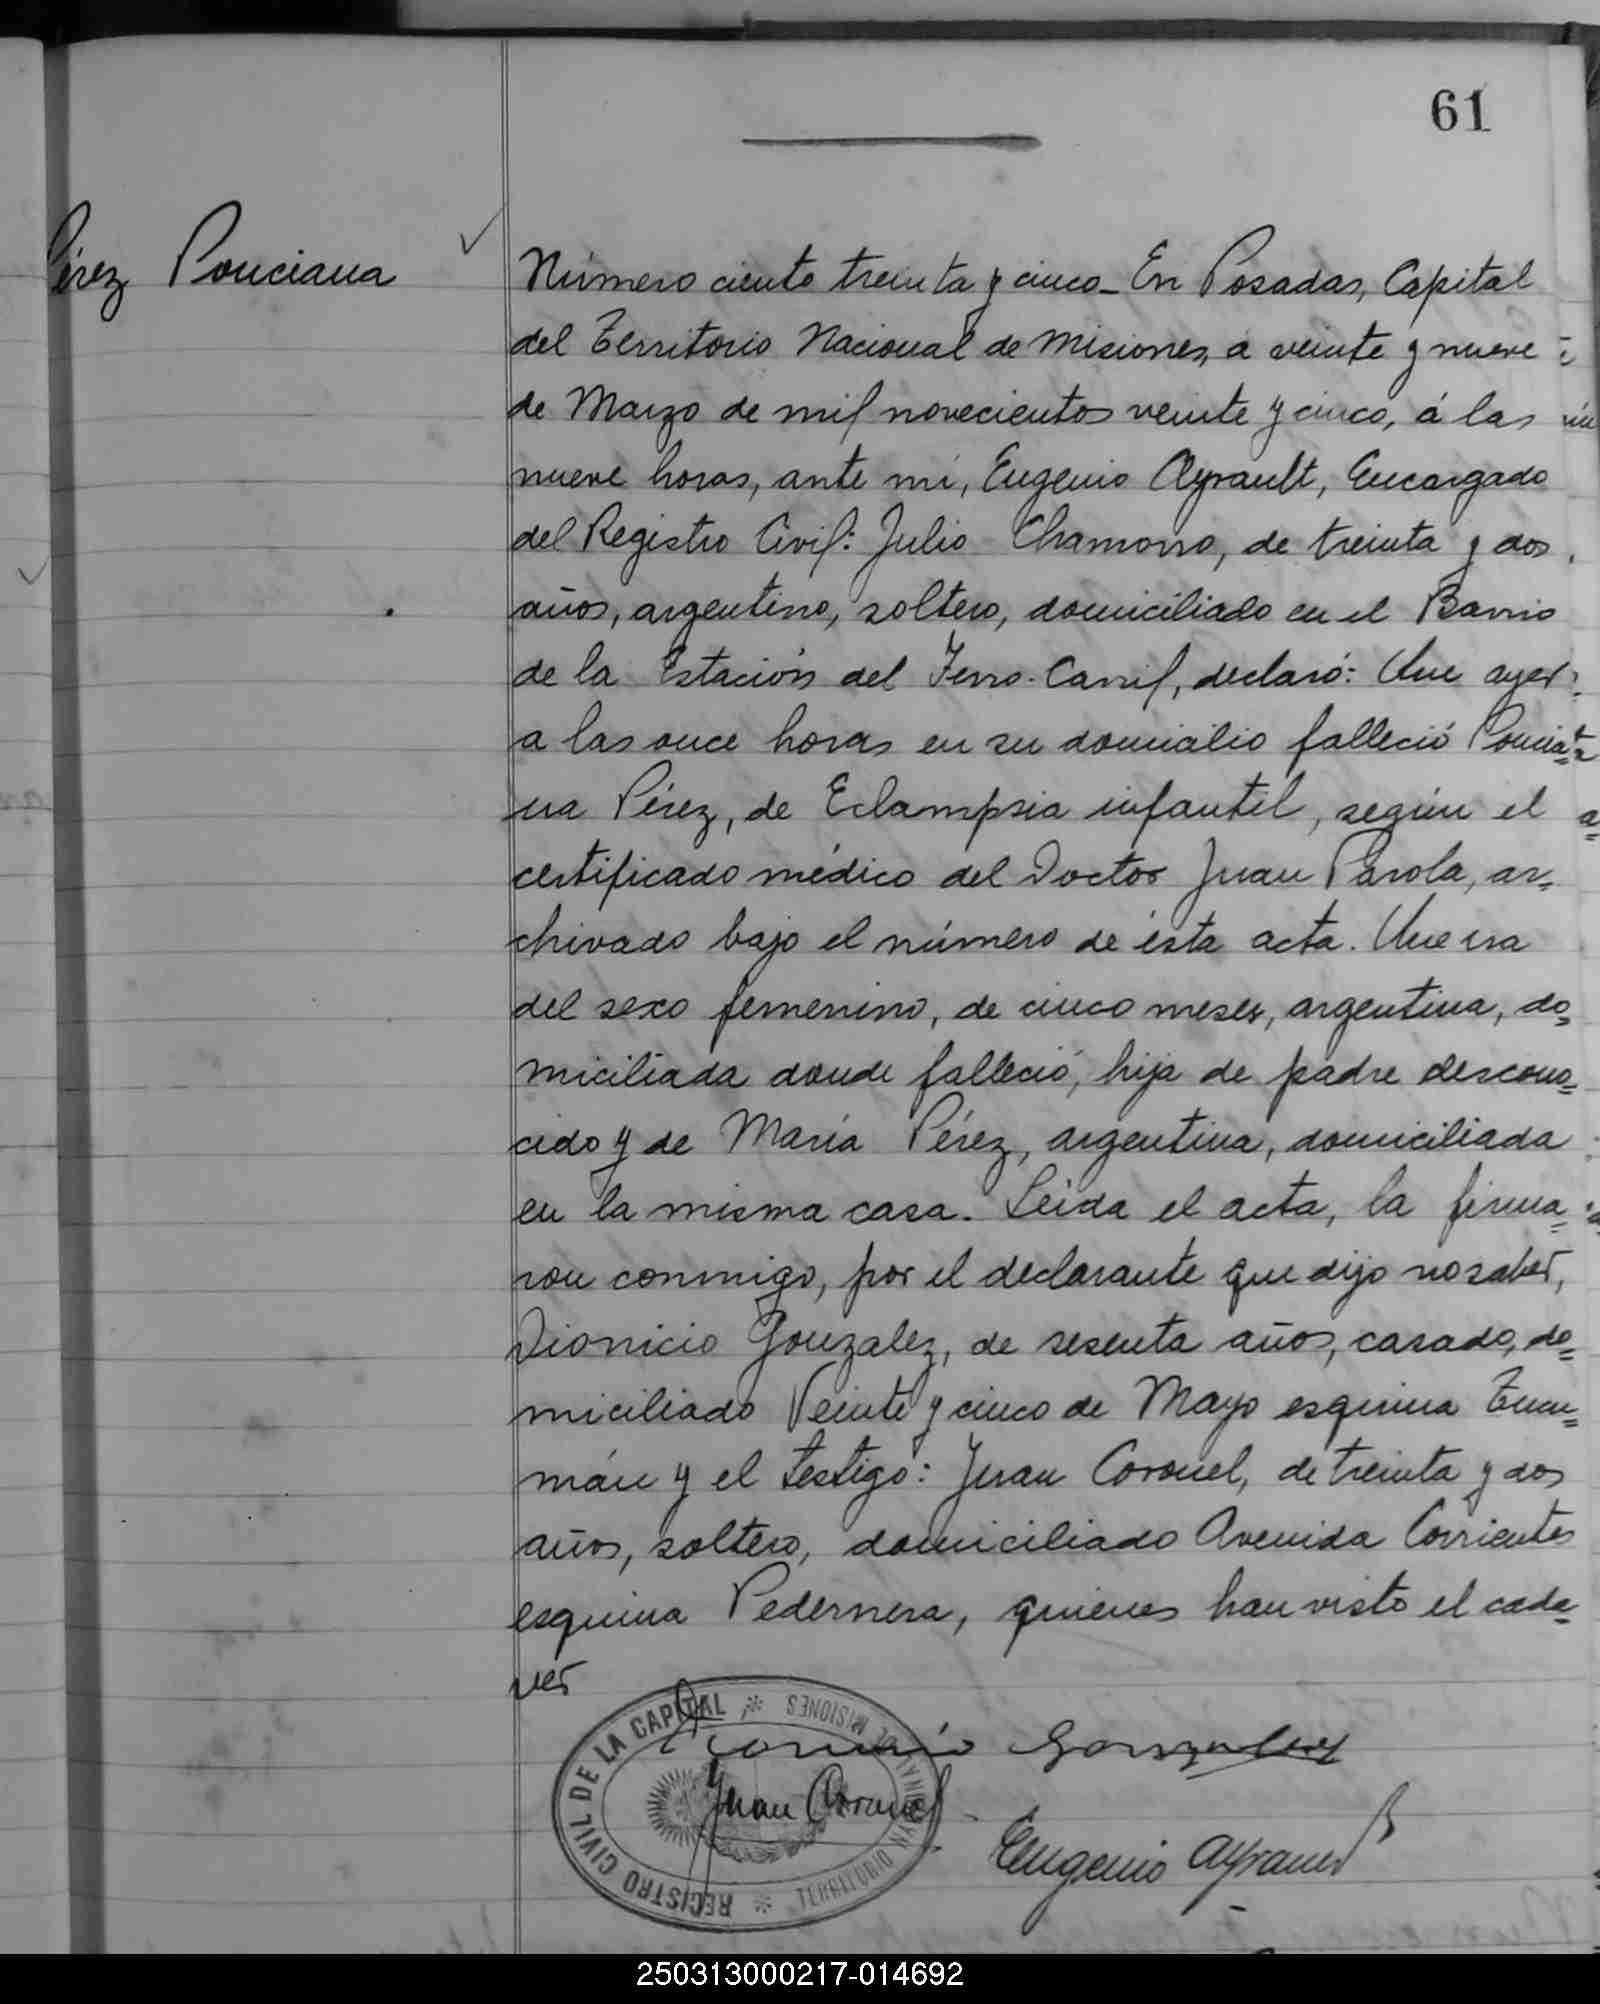 61
Pérez Ponciana
Número ciento treinta y cinco_ En Posadas, Capital
del Territorio Nacional de Misiones, á veinte y nueve
de Marzo de mil novecientos veinte y cinco, á las
nueve horas, ante mí, Eugenio Ayrault, Encargado
del Registro Civil: Julio Chamorro, de treinta y dos
años, argentino, soltero, domiciliado en el Barrio
de la Estación del Ferro-Carril, declaró: Que ayer
a las once horas en su domicilio falleció Poncia=
na Pérez, de Eclampsia infantil, según el
certificado médico del Doctor Juan Parola, ar=
chivado bajo el número de ésta acta. Que era
del sexo femenino, de cinco meses, argentina, do=
miciliada donde falleció, hija de padre descono=
cido y de María Pérez, argentina, domiciliada
en la misma casa. Leida el acta, la firma=
ron conmigo, por el declarante que dijo no saber,
Dionicio Gonzalez, de sesenta años, casado, do=
miciliado Veinte y cinco de Mayo esquina Tucu=
mán y el testigo: Juan Coronel, de treinta y dos
años, soltero, domiciliado Avenida Corrientes
esquina Pedernera, quienes han visto el cada=
ver
REGISTRO CIVIL DE LA CAPITAL * TERRITORIO NACIONAL DE MISIONES *
Dionicio Gonzalez
Juan Coronel
Eugenio Ayrault
250313000217-014692